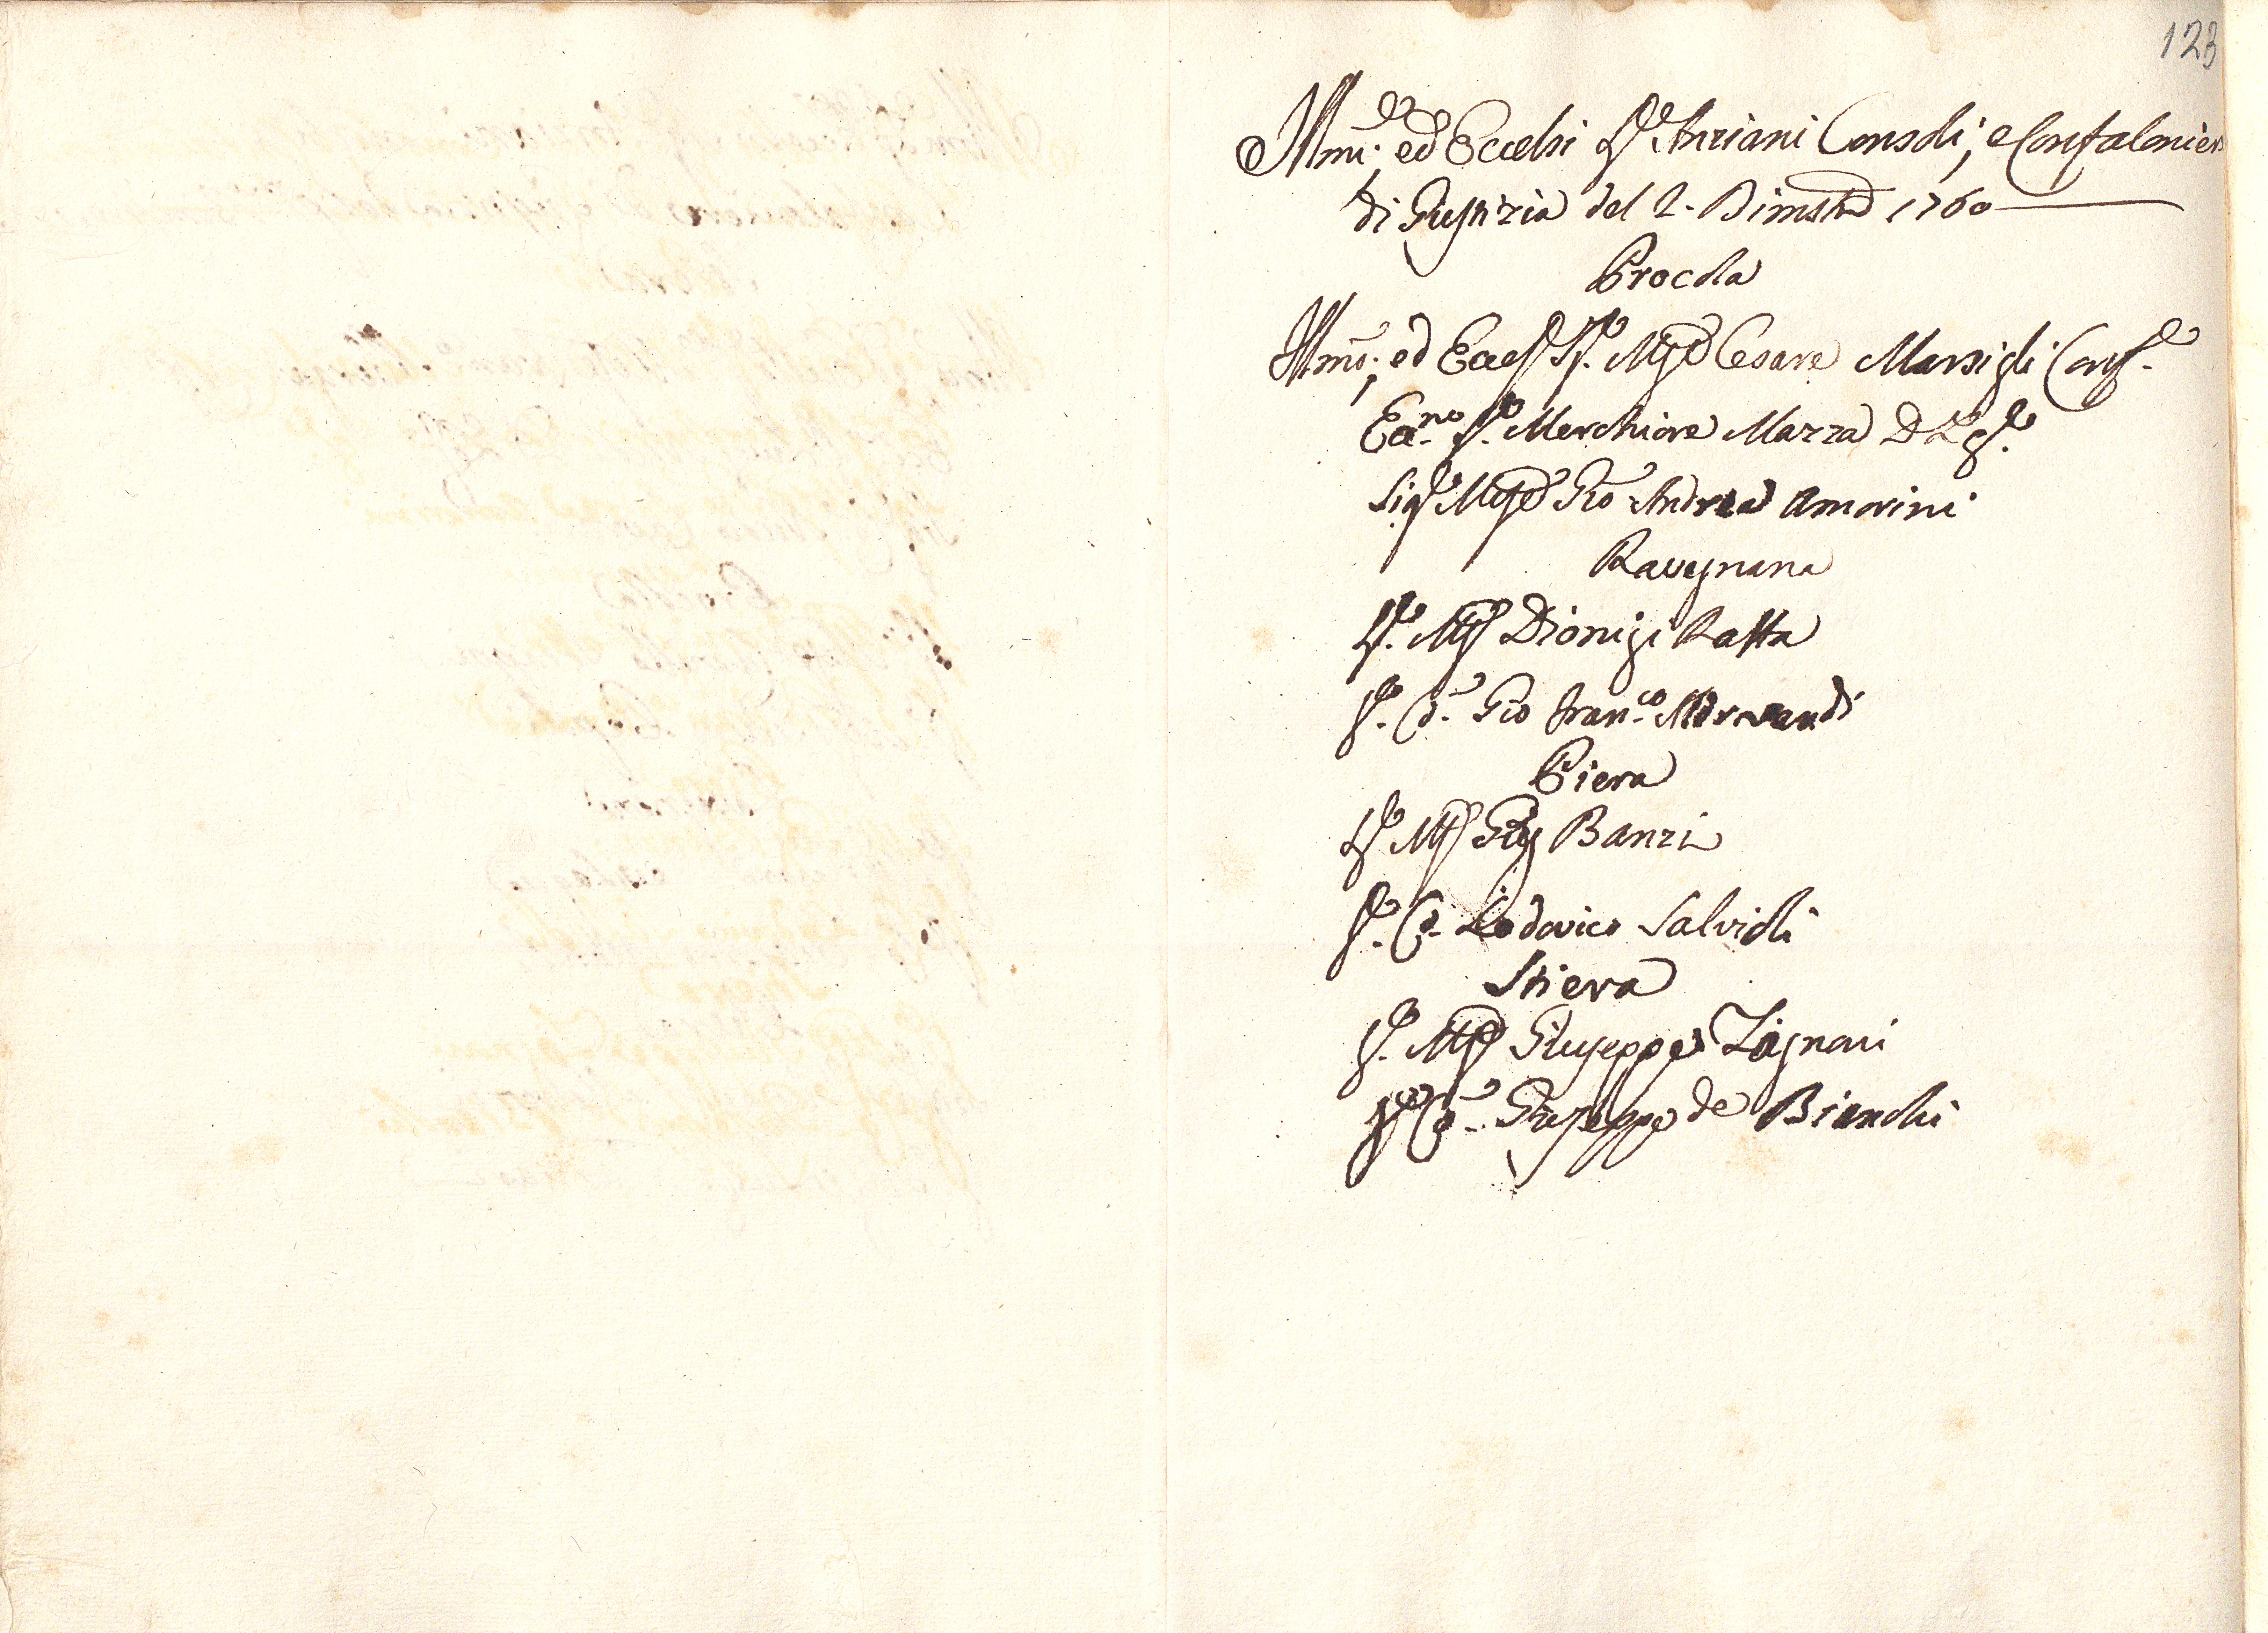 123
Illmi; ed Eccelsi SS.ri Anziani Consoli, e Confalonier
di Giustizia del 2. Bimstre 1760
Procola
Illmo; ed Eccel Sr. Mse Cesare Marsigli Conf.
Ecc.mo Sr. Merchiore Mazza D
Sigr Mse Gio Andrea Amorini
Ravegnana
Sr. Mse Dionigi Ratta
Sr. Co. Gio Fran.co
Piera
Sr Mse Banzi
Sr. Co. Lodovico Salvioli
Stiera
Sr. Mse Giuseppe Zagnoni
Sr Co. Giuseppe de Bianchi